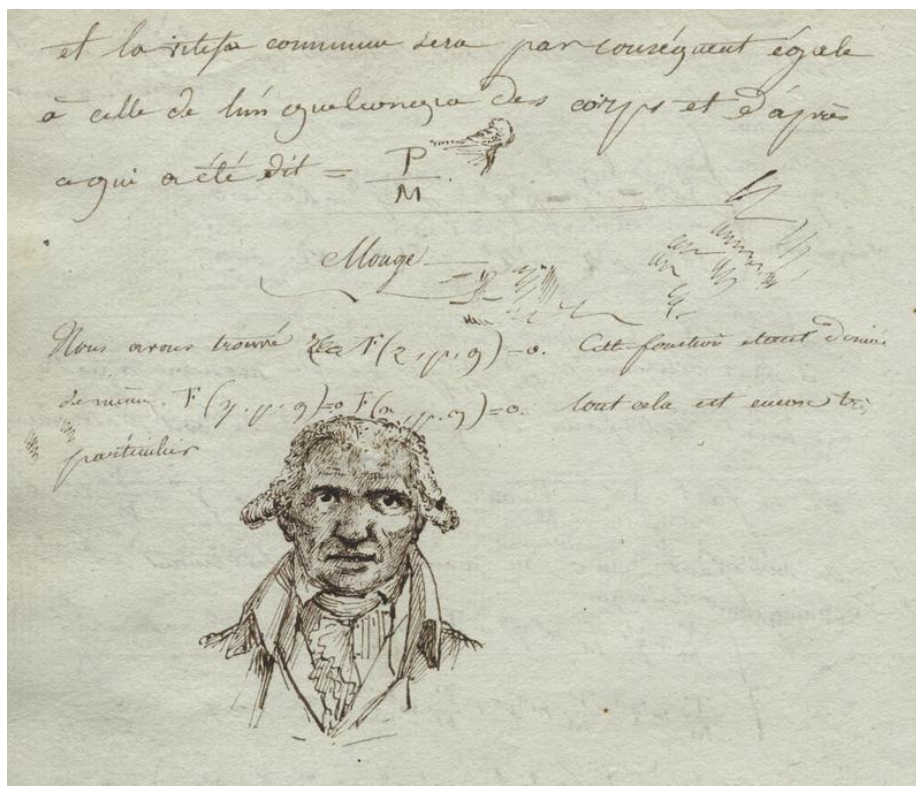 et la vitesse commune sera par conséquent égale
à celle de l'un quelconque des corps et d'après
ce qui a été dit = P/M.
Monge
Nous avons trouvé F(z, p, q) = 0. Cette fonction étant donnée
de même. F(y, p, q)=0 F(x, p, q)=0. tout cela est encore très
particulier